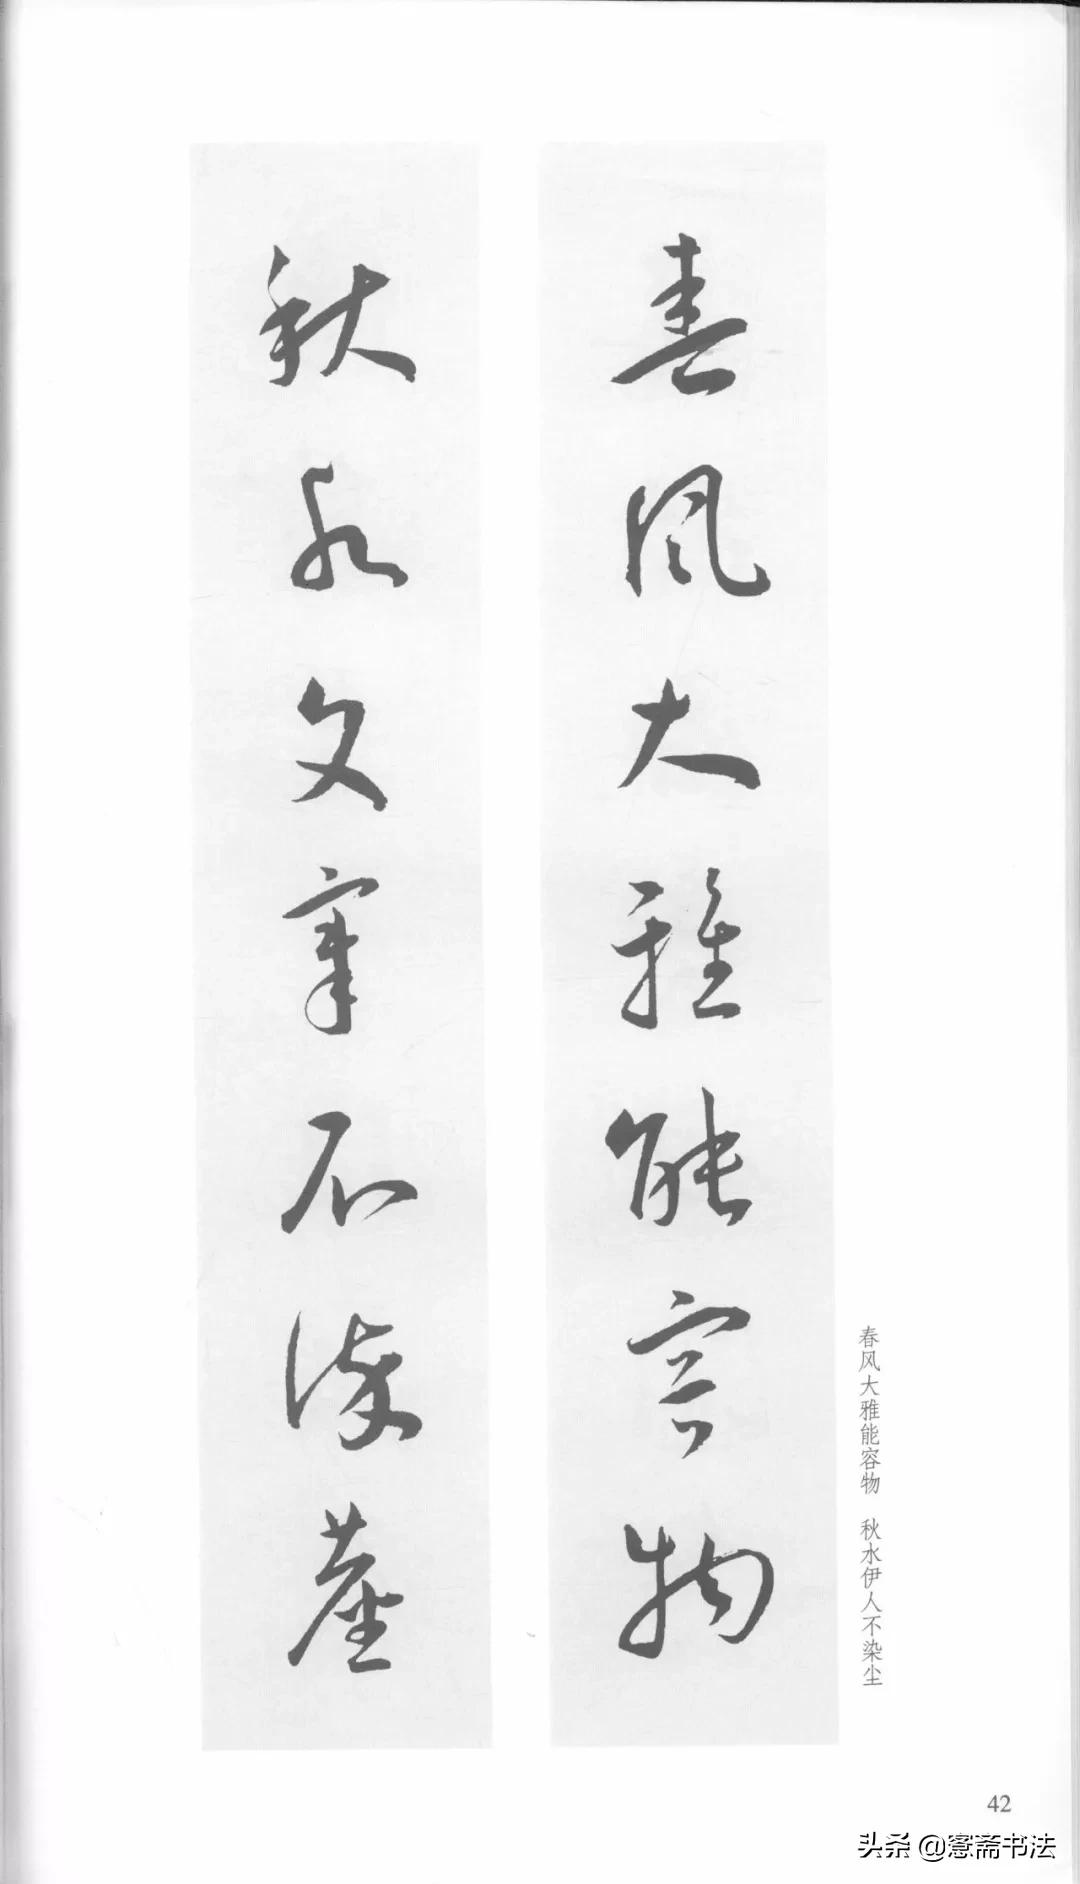 春风大雅能容物
秋水文章不染尘
春风大雅能容物 秋水伊人不染尘
42
头条@窓斋书法